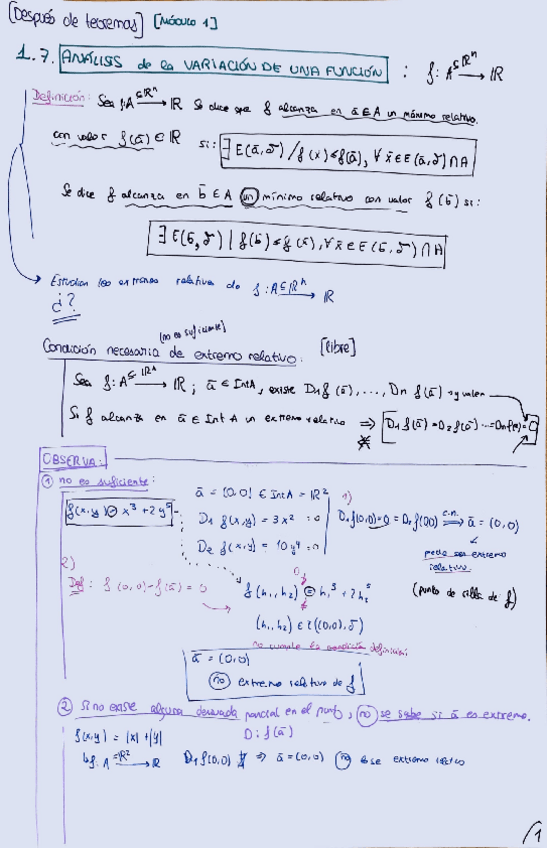 [Después de teoremas] [MÓDULO 1]
1.7. ANÁLISIS de la VARIACIÓN DE UNA FUNCIÓN : f: A⊆ℝⁿ → ℝ
Definición: Sea f: A⊆ℝⁿ → ℝ Se dice que f alcanza en ā∈A un máximo relativo.
con valor f(ā) ∈ ℝ si: ∃ E(ā,δ) / f(x) ≤ f(ā), ∀ x̄ ∈ E(ā,δ) ∩ A
Se dice f alcanza en b̄ ∈ A un mínimo relativo con valor f(b̄) si:
∃ E(b̄,δ) | f(b̄) ≤ f(x̄), ∀ x̄ ∈ E(b̄,δ) ∩ A
Estudiar los extremos relativos de f: A⊆ℝⁿ → ℝ
¿?
(no es suficiente)
Condición necesaria de extremo relativo: [libre]
Sea f: A⊆ℝⁿ → ℝ ; ā ∈ Int A, existe D₁f(ā), ..., Dn f(ā) y valen
Si f alcanza en ā ∈ Int A un extremo relativo ⇒ D₁f(ā) = D₂f(ā) ... = Dnf(ā) = 0
OBSERVA:
① no es suficiente:
f(x,y) = x³ + 2y⁵
ā = (0,0) ∈ Int A = ℝ²
D₁ f(x,y) = 3x² = 0
D₂ f(x,y) = 10y⁴ = 0
1) D₁f(0,0) = 0 = D₂f(0,0) ⇒ ā = (0,0)
c.n.
puede ser extremo
relativo
(punto de silla de f)
2)
Def: f(0,0) - f(ā) = 0
f(h₁,h₂) = h₁³ + 2h₂⁵
(h₁,h₂) ∈ E((0,0),δ)
no cumple la condición definición
ā = (0,0)
no extremo relativo de f
② Si no existe alguna derivada parcial en el punto, no se sabe si ā es extremo.
Di f(ā)
f(x,y) = |x| + |y|
↳ f: A=ℝ² → ℝ D₁f(0,0) ∄ ⇒ ā = (0,0) no extremo
/1